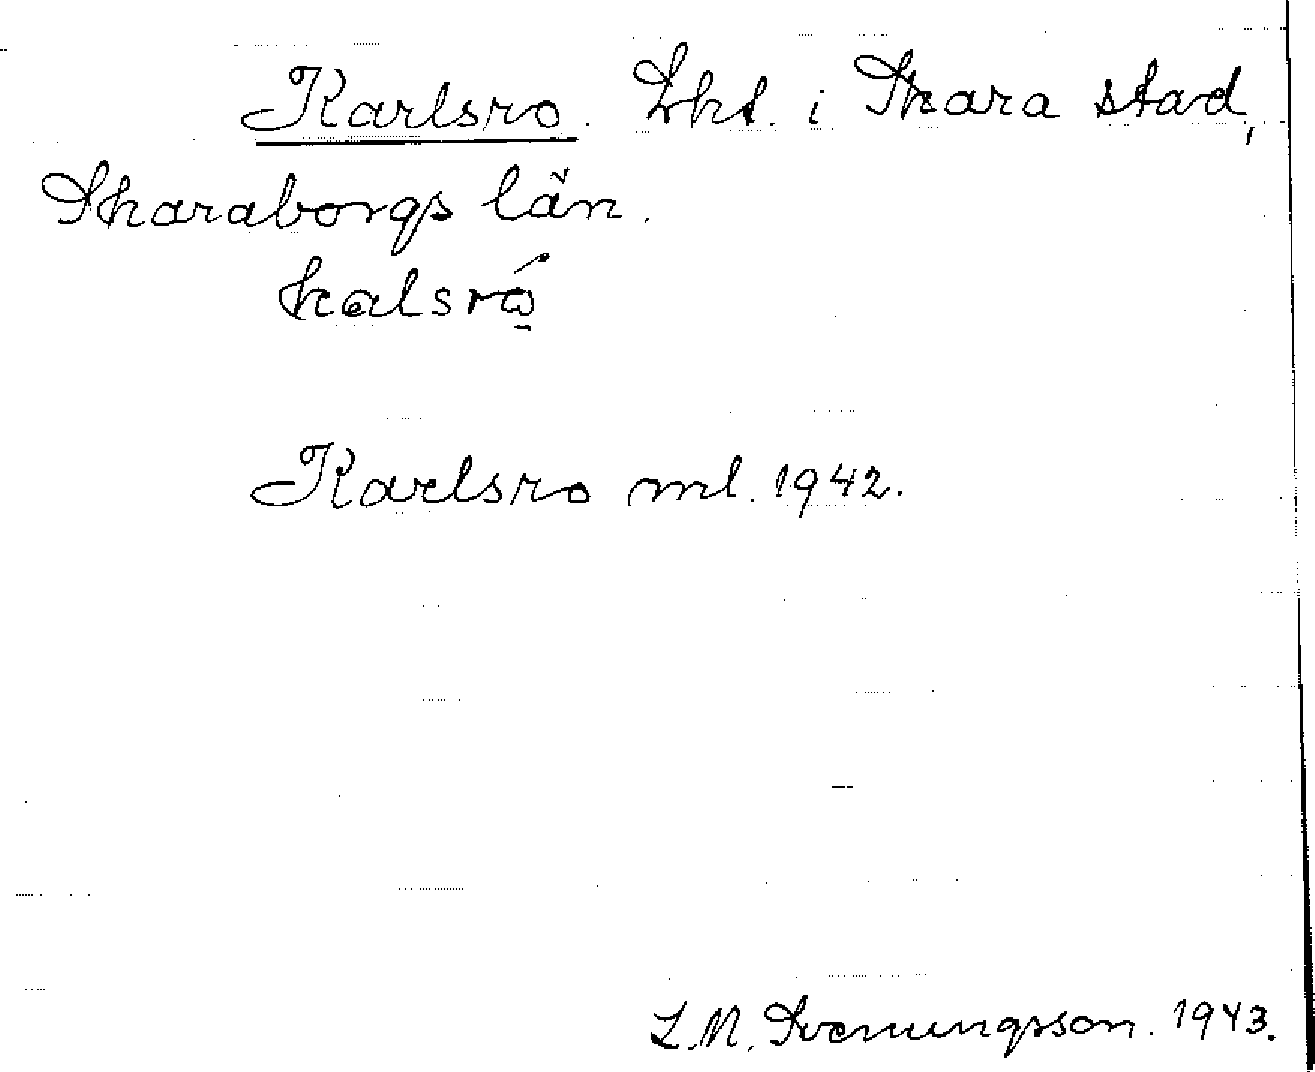 Karlsro. Lht. i Skara stad,
Skaraborgs län.
kalsró̱
Karlsro ml. 1942.
L.M. Svenungsson. 1943.